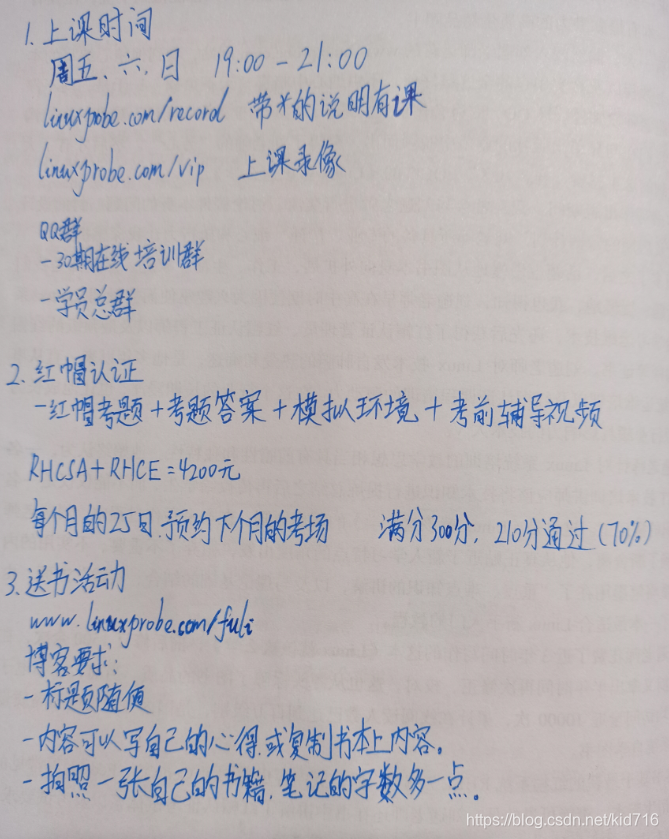 1. 上课时间
周五、六、日 19:00-21:00
linuxprobe.com/record 带*的说明有课
linuxprobe.com/vip 上课录像
QQ群
-30期在线培训群
-学员总群
2. 红帽认证
-红帽考题+考题答案+模拟环境+考前辅导视频
RHCSA+RHCE=4200元
每个月的25日预约下个月的考场 满分300分，210分通过(70%)
3. 送书活动
www.linuxprobe.com/fuli
博客要求：
-标题随便
-内容可以写自己的心得，或复制书本上内容。
-拍照一张自己的书籍，笔记的字数多一点。
https://blog.csdn.net/kid716